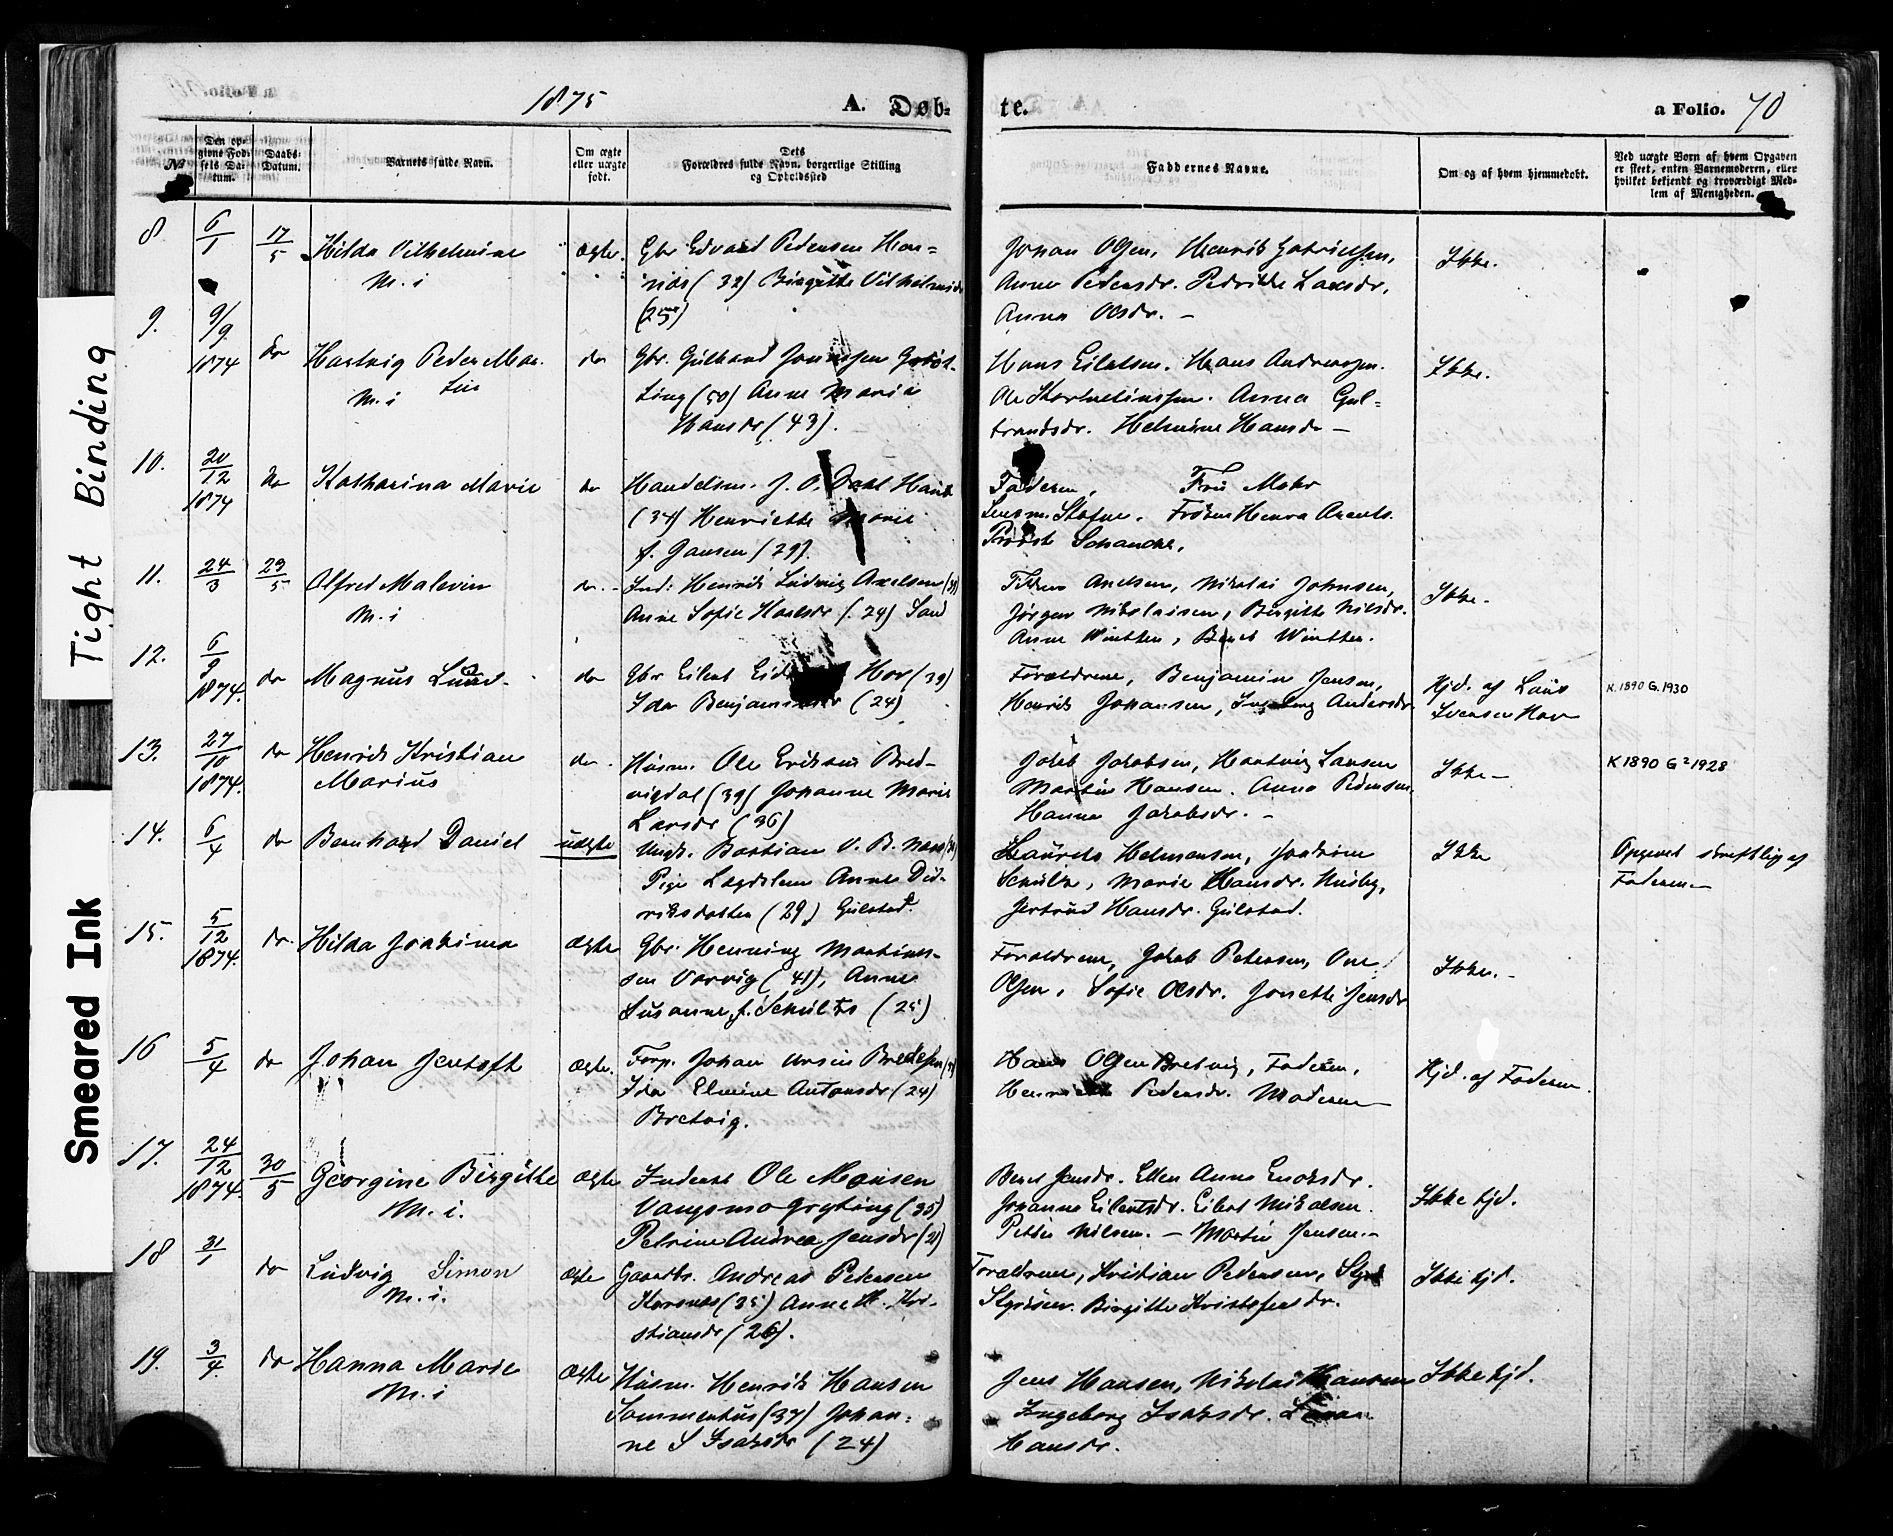 1875
A. Døb-
te.
a Folio. 70
Tight Binding
Smeared Ink
№
Den op-
givne Fød-
sels Da-
tum.
Daabs-
Datum.
Barnets fulde Navn.
Om ægte
eller uægte
født.
Dets
Forældres fulde Navn, borgerlige Stilling
og Opholdssted
Faddernes Navne.
Om og af hvem hjemmedøbt.
Ved uægte Børn af hvem Opgaven
er skeet, enten Barnemoderen, eller
hvilket bekjendt og troværdigt Med-
lem af Menigheden.
8
6/1
17/5
Hilda Vilhelmine
M. i
ægte.
Gbr Edvard Pedersen Hen-
næs (32) Birgitte Vilhelmsdr
(25)
Johan Olsen, Henrik Gabrielsen,
Anne Pedersdr. Pedrikke Larsdr,
Anna Olsdr. –
Ikke.
9.
9/9
1874
do
Hartvig Peder Mar-
tin
M. i
do
Gbr.
(50) Anne Maria
Hansdr (43).
Hans Eilertsen. Hans Andreassen.
Ole Korneliussen. Anna Gul-
brandsdr. Helmine Hansdr –
Ikke.
10.
20/12
1874
do
Katharina Marie
do
Handelsm. J. O. Dahl
(34) Henriette Marie
f. Jansen (29).
Faderen, Fru Mohr
Lensm. Frøken
Provst Schancke,
11.
24/3
29/5
Alfred Malevin
M. i
do
Ind: Henrik Ludvig Axelsen
Anne Sofie (24)
Nikolai Johnsen,
Jørgen Nikolaisen, Birgitte Nilsdr.
Anne Winther, Beret Winther.
Ikke.
12.
6/9
1874.
do
Magnus
do
Gbr Eilert Hov (39)
Ida (24)
Forældrene, Benjamin Jensen,
Henrik Johansen, Ingeborg Andersdr
Hjd. af
Ivensen Hov
K. 1890 G. 1930
13.
27/10
1874.
do
Henrik Kristian
Marius
do.
Husm. Ole Eriksen Bred-
vigdal (39) Johanne Marie
Larsdr (36)
Jakob Jakobsen, Hartvig Larsen
Martin Hansen. Anna Pedersen
Hanna Jakobsdr. –
Ikke –
K 1890 G² 1928
14.
6/4
do
Bernhard Daniel
uægte
Ungk. Bastian
Pige Anne Did-
riksdatter (29) Gulstad.
Laurits Helmersen,
Schultz, Marie Hansdr. Husby,
Jertrud Hansdr. Gulstad.
Ikke
Opgivet skriftlig af
Faderen –
15.
5/12
1874.
do.
Hilda Joakima
ægte
Gbr. Henning Martinus-
sen Varvig (41), Anne
Susanne, f. Schultz (25)
Forældrene, Jakob Petersen,
Olsen, Sofie Olsdr. Jonette Jensdr
Ikke. –
16
5/4
do
Johan Jentoft
ægte.
Forp. Johan Ursin Bredesen
Ida Elmine Antonsdr (24)
Bretvig.
Hans Olsen Bretvig, Faderen,
Pedersdr. Moderen
Hjd. af Faderen
17.
24/12
1874.
30/5
Georgine Birgitte
M. i.
ægte
Inderst Ole Monsen
Vangsmo (35)
Petrine Andrea Jensdr
Beret Jensdr. Ellen Anna Enoksdr.
Johanna Eilertsdr. Eilert Nikolsen.
Petter Nilsen. – Martin Jensen. –
Ikke hjd.
18
31/1
do
Ludvig Simon
M. i.
ægte
Gaardbr. Andreas Petersen
Korsnæs (35) Anne M. Kri-
stiansdr (26).
Forældrene, Kristian Pedersen,
Birgitte Kristofersdr.
Ikke hjd.
19.
3/4.
do
Hanna Marie
M. i
ægte
Husm. Henrik Hansen
(37) Johan-
ne S Isaksdr (24)
Jens Hansen, Nikolai Hansen
Ingeborg Isaksdr.
Hansdr.
Ikke hjd.